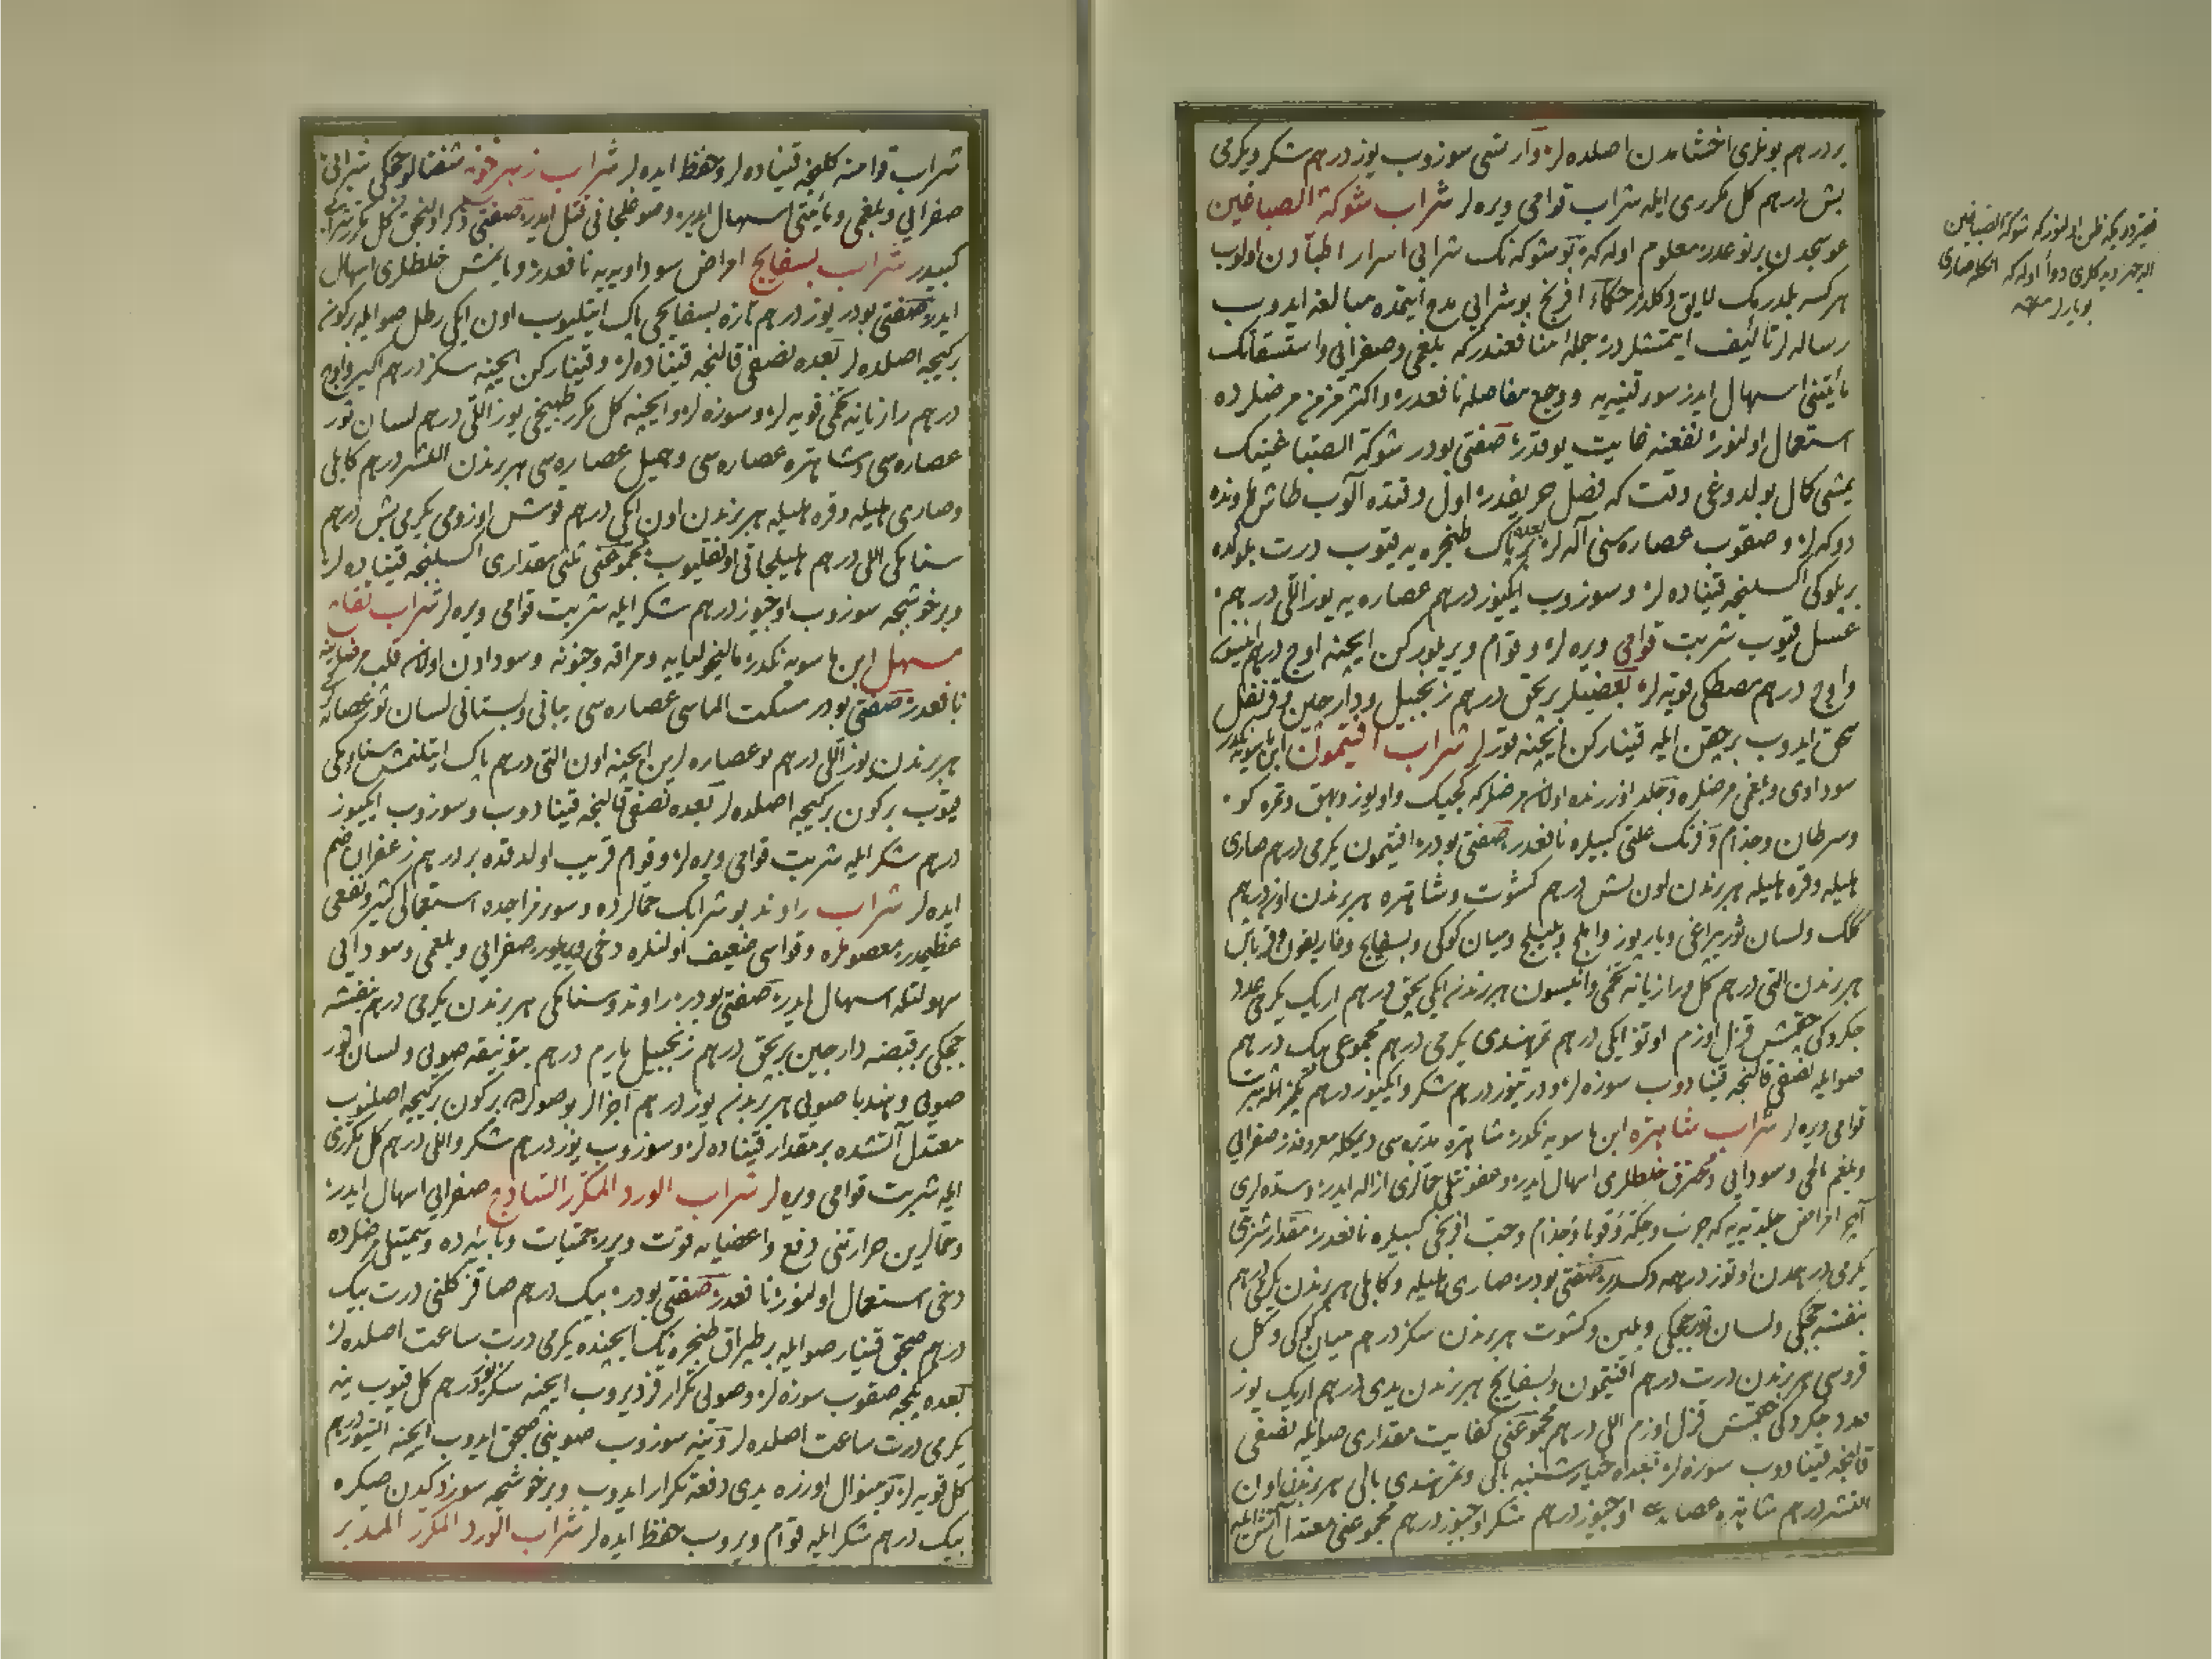 بر درهم بونلری اخشامدن اصلده لر وارتسی سوزوب یوز درهم شکر ویکرمی
بش درهم کل مکرری ایله شراب قوامی ویره لر شراب شوکة الصباغین
عوسجدن بر نوعدر معلوم اوله که بو شوکه نک شرابی اسرار اطبادن اولوب
هر کسه بلدرمک لایق دکلدر حکماء افرنج بو شرابی مدح ایتمده مبالغه ایدوب
رساله لر تألیف ایتمشلردر جمله منافعندندر که بلغمی وصفرایی واستسقانک
مائیتنی اسهال ایدر سوء قنیه یه ووجع مفاصله نافعدر واکثر مزمن مرضلرده
استعمال اولنور نفعنه غایت یوقدر صفتی بودر شوکة الصباغینک
یمشی کمال بولدوغی وقت که فصل خریفدر اول وقتده آلوب طاش هاونده
دوکه لر وصقوب عصاره سنی آله لر بعده بر پاک طنجره یه قیوب درت بلوکده
بر بلوکی اکسلنجه قیناده لر وسوزوب ایکیوز درهم عصاره یه یوز اللی درهم
عسل قیوب شربت قوامی ویره لر وقوام ویریلورکن ایچنه اوچ درهم انیسون
واوچ درهم مصطکی قویه لر بعضیلر بر بچق درهم زنجبیل ودارچین وقرنفل
سحق ایدوب بر چقن ایله قینارکن ایچنه قورلر شراب افتیمون ابن ماسویه نکدر
سوداوی وبلغمی مرضلره وجلد اوزرنده اولان مرضلر که کجیک واویوز وبهق وتمره کو
وسرطان وجذام وفرنک علتی کبیلره نافعدر صفتی بودر افتیمون یکرمی درهم صاری
هلیله وقره هلیله هر برندن اون بش درهم کشوت وشاهتره هر برندن اونر درهم
کلک ولسان ثور یپراغی وبارپوز واملج وبلیلج ومیان کوکی وبسفایج وغاریقون وتربد
هر برندن التی درهم کل ورازیانه تخمی وانیسون هر برندن ایکی بچق درهم اریک یکرمی عدد
چکردکی چقمش قزل اوزم اوتوز ایکی درهم تمرهندی یکرمی درهم مجموعی بیک درهم
صو ایله نصفی قالنجه قینادوب سوزه لر ودرتیوز درهم شکر وایکیوز درهم
قوامی ویره لر شراب شاهتره ابن ماسویه نکدر شاهتره مدبره سی دیمکله معروفدر صفرایی
وبلغم مالحی وسودایی ومحترق خلطلری اسهال ایدر وعفونتلی حمالری ازاله ایدر وسده لری
آچر امراض جلدیه یه که جرب وحکه وقوبا وجذام وحب افرنجی کبیلره نافعدر مقدار شربتی
یکرمی درهمدن اوتوز درهمه دکدر صفتی بودر صاری هلیله وکابلی هر برندن یکرمی درهم
بنفشه چچکی ولسان ثور چچکی وکشوت هر برندن سکز درهم میان کوکی وکل
قروسی هر برندن درت درهم افتیمون وبسفایج هر برندن یدی درهم اریک یوز
عدد چکردکی چقمش قزل اوزم اللی درهم مجموعنی کفایت مقداری صو ایله نصفی
قالنجه قینادوب سوزه لر بعده خیارشنبه بالی وتمرهندی بالی هر برندن اون
التشر درهم شاهتره عصاره سی اوچیوز درهم شکر اوچیوز درهم مجموعنی معتدل آتش ایله
شراب قوامنه کلنجه قیناده لر وحفظ ایده لر شراب زهر خوخ شفتالو چچکی شرابی
صفرایی وبلغمی ومائیتی اسهال ایدر وصوغلجانی قتل ایدر صفتی ذکر اولنجق کل مکرر شرابی
کبیدر شراب بسفایج امراض سوداویه یه نافعدر ویانمش خلطلری اسهال
ایدر صفتی بودر یوز درهم تازه بسفایجی پاک ایتلیوب اون ایکی رطل صو ایله بر کون
بر کیجه اصلده لر بعده نصفی قالنجه قیناده لر وقینارکن ایچنه سکز درهم اکیر واوچ
درهم رازیانه تخمی قویه لر وسوزه لر وایچنه کل مکرر طبیخی یوز اللی درهم لسان ثور
عصاره سی وشاهتره عصاره سی وهیل عصاره سی هر برندن التمشر درهم کابلی
وصاری هلیله وقره هلیله هر برندن اون ایکی درهم قوش اوزومی یکرمی بش درهم
سنامکی اللی درهم هلیلجاتی اوفلیوب مجموعنی ثلثی مقداری اکسلنجه قیناده لر
وبر خوشجه سوزوب اوچیوز درهم شکر ایله شربت قوامی ویره لر شراب تفاح
مسهل ابن ماسویه نکدر مالیخولیایه ومراقه وجنونه وسودادن اولان قلب مرضلرینه
نافعدر صفتی بودر مسکت الماسی عصاره سی یبانی وبستانی لسان ثور عصاره سی
هر برندن یوز اللی درهم بو عصاره لرین ایچنه اون التی درهم پاک ایتلنمش سنامکی
قیوب بر کون بر کیجه اصلده لر بعده نصفی قالنجه قینادوب وسوزوب ایکیوز
درهم شکر ایله شربت قوامی ویره لر وقوام قریب اولدقده بر درهم زعفران ضم
ایده لر شراب راوند بو شرابک حمالرده وسوء مزاجده استعمالی کثیر ونفعی
عظیمدر معصوملره وقواسی ضعیف اولنلره دخی ویریلور صفرایی وبلغمی وسودایی
سهولتله اسهال ایدر صفتی بودر راوند وسنامکی هر برندن یکرمی درهم بنفشه
چچکی بر قبضه دارچین بر بچق درهم زنجبیل یارم درهم صویی ولسان ثور
صویی وهندبا صویی هر برندن یوز درهم اجزالر بو صولرده بر کون بر کیجه اصلنوب
معتدل آتشده بر مقدار قیناده لر وسوزوب یوز درهم شکر واللی درهم کل مکرری
ایله شربت قوامی ویره لر شراب الورد المکرر الساذج صفرایی اسهال ایدر
وحمالرین حرارتنی دفع واعضایه قوت ویرر حمیات وبائیه ده وسمیتلی مرضلرده
دخی استعمال اولنور نافعدر صفتی بودر بیک درهم صاقز کلنی درت بیک
درهم صیجق قینار صو ایله بر طپراق طنجره نک ایچنده یکرمی درت ساعت اصلده لر
بعده بنجه صقوب سوزه لر وصویی تکرار قزدیروب ایچنه سکزیوز درهم کل قیوب ینه
یکرمی درت ساعت اصلده لر وینه سوزوب صوینی صیجق ایدوب ایچنه التیوز درهم
کل قویه لر بو منوال اوزره یدی دفعه تکرار ایدوب وبر خوشجه سوزدکدن صکره
بیک درهم شکر ایله قوام ویروب حفظ ایده لر شراب الورد المکرر المدبر